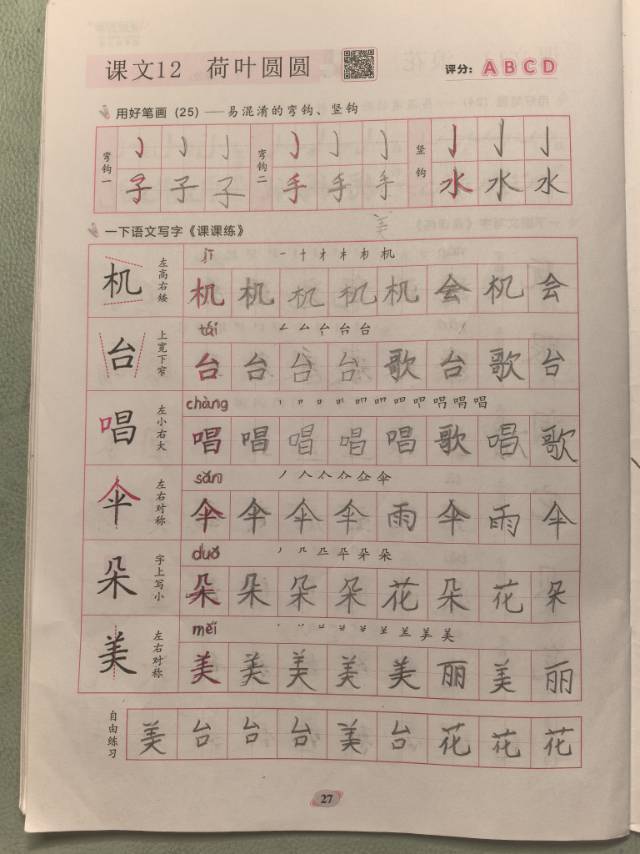 课文12 荷叶圆圆
评分: A B C D
用好笔画 (25) ——易混淆的弯钩、竖钩
弯钩一 弯钩二 竖钩
子 子 子 手 手 手 水 水 水
美
一下语文写字《课课练》
机 左高右矮
jī 一 十 才 木 机 机
机 机 机 机 机 会 机 会
台 上宽下窄
tái 台 台
台 台 台 台 歌 台 歌 台
唱 左小右大
chàng 唱 唱 唱
唱 唱 唱 唱 唱 歌 唱 歌
伞 左右对称
sǎn 丿 人 伞
伞 伞 伞 伞 雨 伞 雨 伞
朵 字上写小
duǒ 朵 朵
朵 朵 朵 朵 花 朵 花 朵
美 左右对称
měi 美 美
美 美 美 美 美 丽 美 丽
自由练习
美 台 台 台 美 台 花 花 花
27